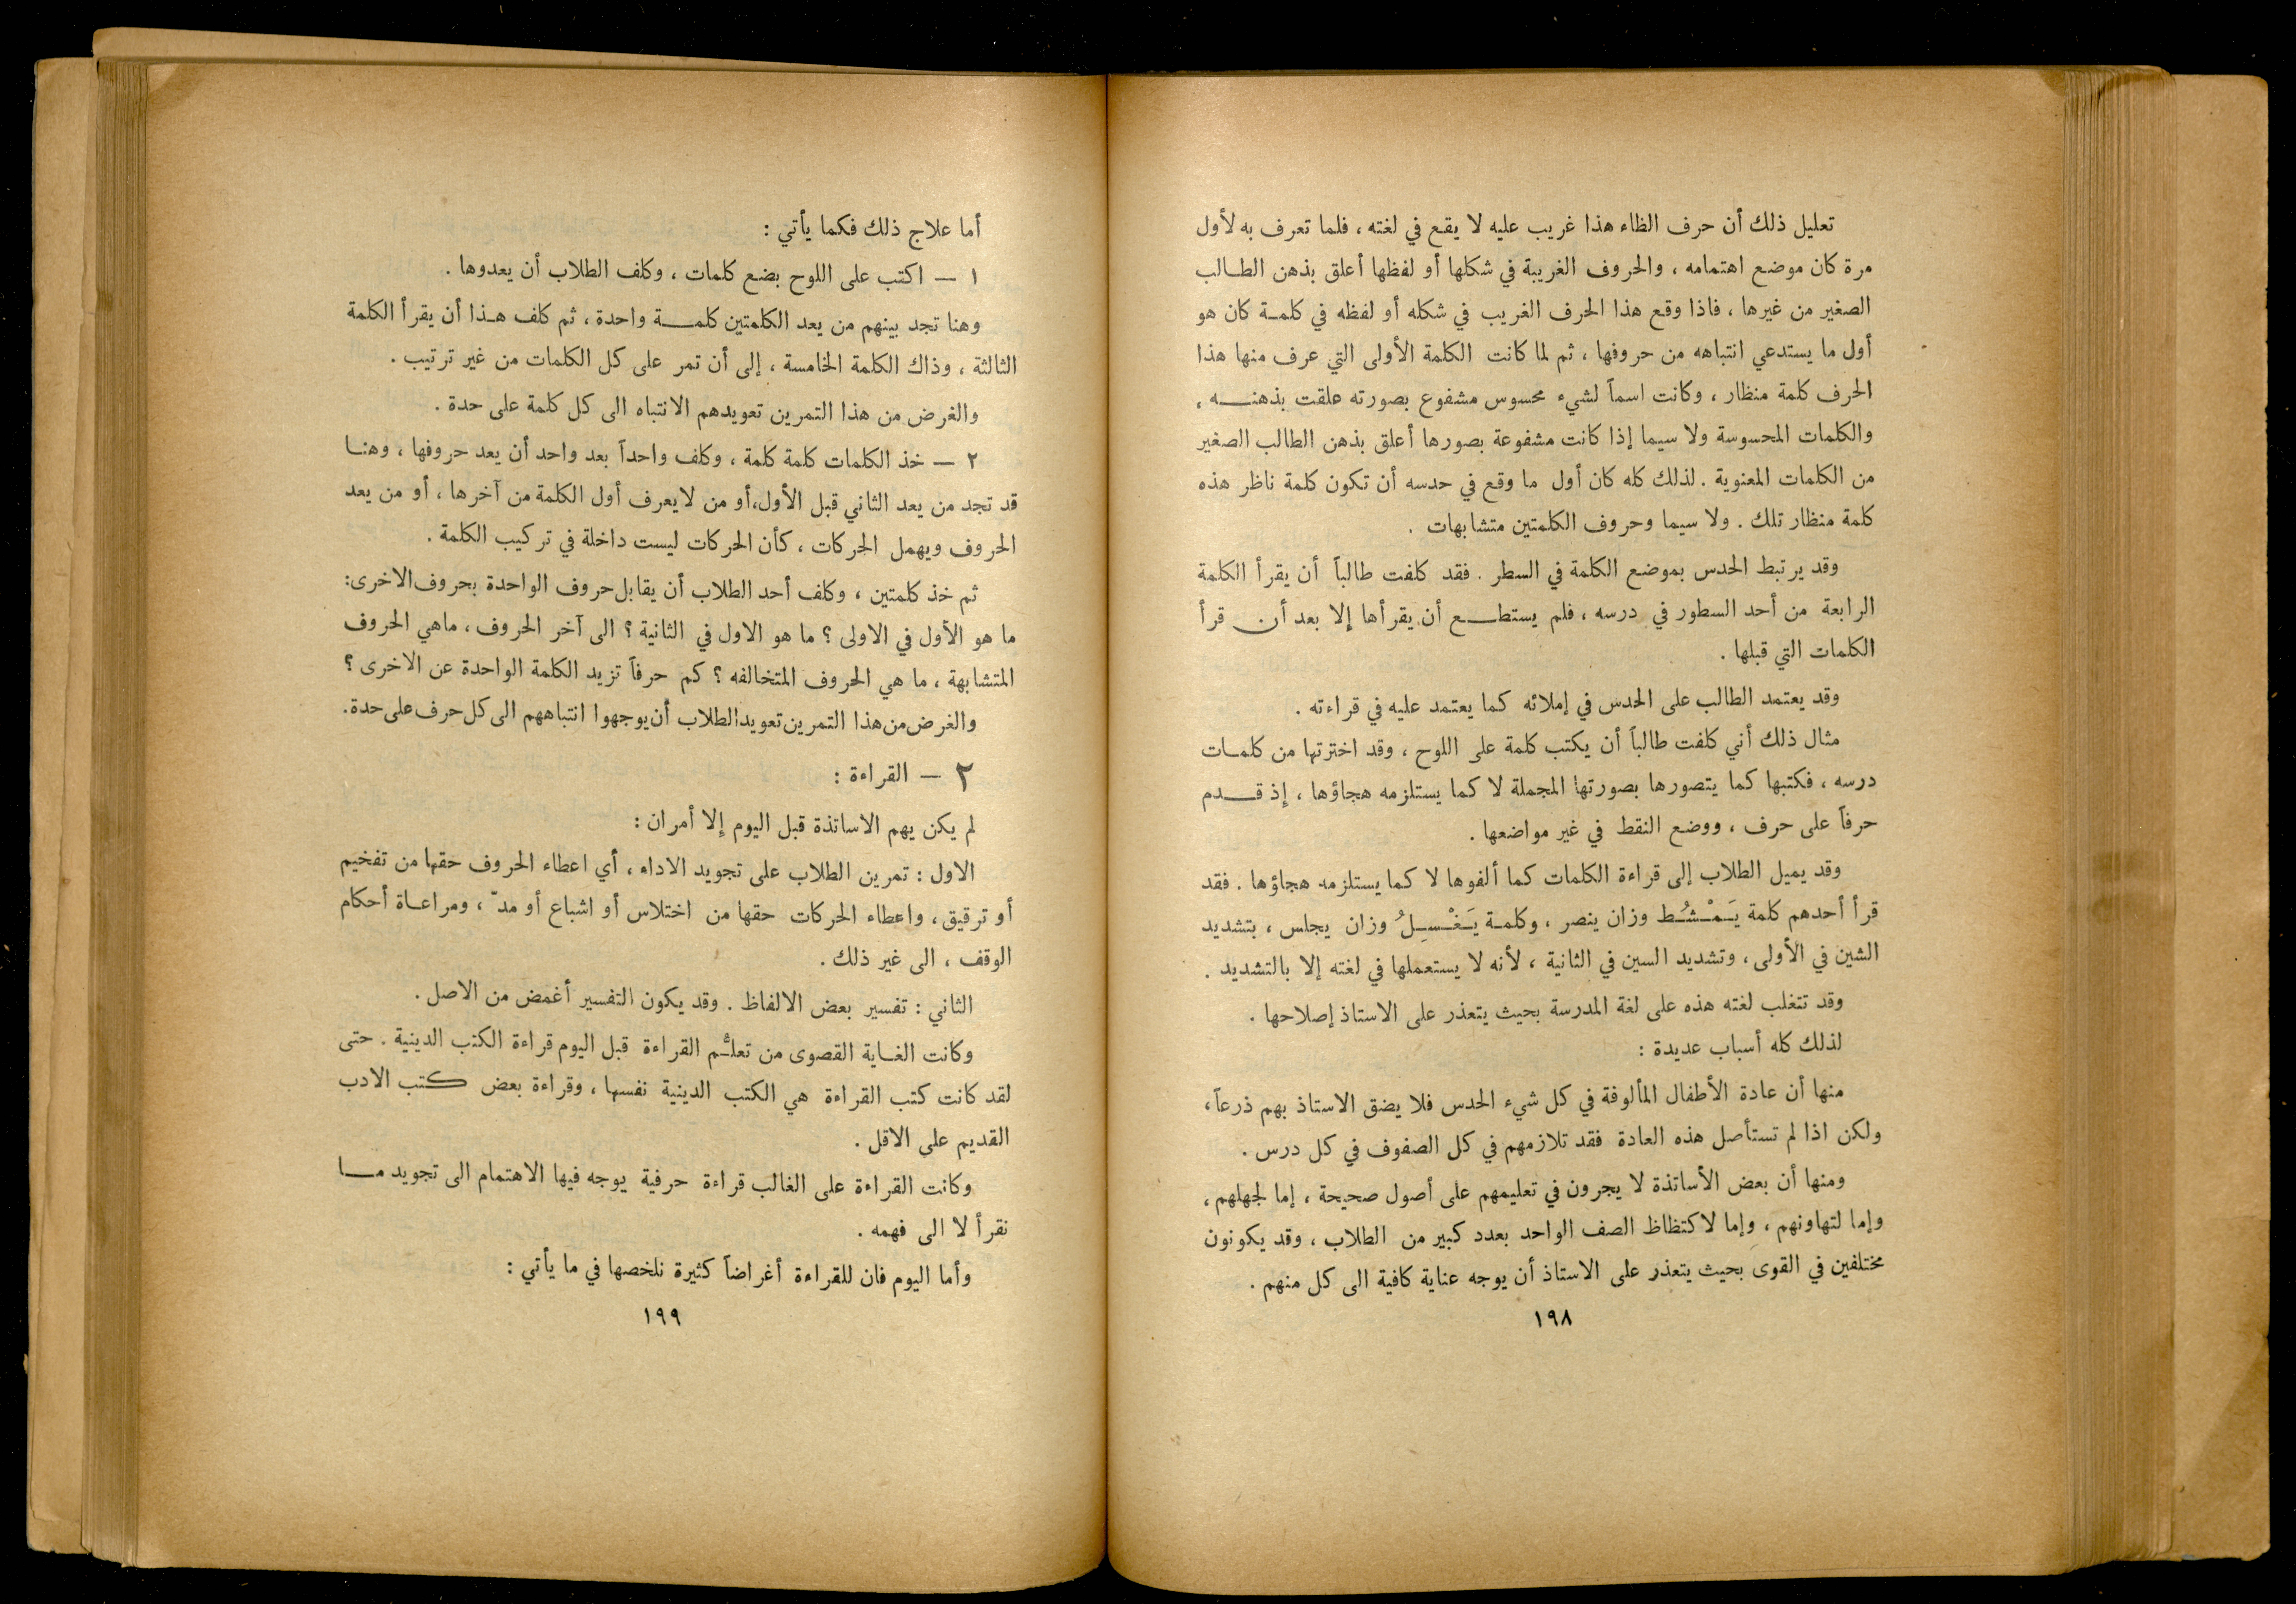 تعليل ذلك أن حرف الظاء هذا غريب عليه لا يقع في لغته ، فلما تعرف به لأول
مرة كان موضع اهتمامه ، والحروف الغريبة في شكلها أو لفظها أعلق بذهن الطالب
الصغير من غيرها ، فاذا وقع هذا الحرف الغريب في شكله أو لفظه في كلمة كان هو
أول ما يستدعي انتباهه من حروفها ، ثم لما كانت الكلمة الأولى التي عرف منها هذا
الحرف كلمة منظار ، وكانت اسماً لشيء محسوس مشفوع بصورته علقت بذهنه ،
والكلمات المحسوسة ولا سيما إذا كانت مشفوعة بصورها أعلق بذهن الطالب الصغير
من الكلمات المعنوية . لذلك كله كان أول ما وقع في حدسه أن تكون كلمة ناظر هذه
كلمة منظار تلك . ولا سيما وحروف الكلمتين متشابهات .
وقد يرتبط الحدس بموضع الكلمة في السطر . فقد كلفت طالباً أن يقرأ الكلمة
الرابعة من أحد السطور في درسه ، فلم يستطع أن يقرأها إلا بعد أن قرأ
الكلمات التي قبلها .
وقد يعتمد الطالب على الحدس في إملائه كما يعتمد عليه في قراءته .
مثال ذلك أني كلفت طالباً أن يكتب كلمة على اللوح ، وقد اخترتها من كلمات
درسه ، فكتبها كما يتصورها بصورتها المجملة لا كما يستلزمه هجاؤها ، إذ قدم
حرفاً على حرف ، ووضع النقط في غير مواضعها .
وقد يميل الطلاب إلى قراءة الكلمات كما ألفوها لا كما يستلزمه هجاؤها . فقد
قرأ أحدهم كلمة يَمْشُط وزان ينصر ، وكلمة يَغْسِلُ وزان يجلس ، بتشديد
الشين في الأولى ، وتشديد السين في الثانية ، لأنه لا يستعملها في لغته إلا بالتشديد .
وقد تتغلب لغته هذه على لغة المدرسة بحيث يتعذر على الاستاذ إصلاحها .
لذلك كله أسباب عديدة :
منها أن عادة الأطفال المألوفة في كل شيء الحدس فلا يضق الاستاذ بهم ذرعاً ،
ولكن اذا لم تستأصل هذه العادة فقد تلازمهم في كل الصفوف في كل درس .
ومنها أن بعض الأساتذة لا يجرون في تعليمهم على أصول صحيحة ، إما لجهلهم ،
وإما لتهاونهم ، وإما لاكتظاظ الصف الواحد بعدد كبير من الطلاب ، وقد يكونون
مختلفين في القوى بحيث يتعذر على الاستاذ أن يوجه عناية كافية الى كل منهم .
١٩٨
أما علاج ذلك فكما يأتي :
١ — اكتب على اللوح بضع كلمات ، وكلف الطلاب أن يعدوها .
وهنا تجد بينهم من يعد الكلمتين كلمة واحدة ، ثم كلف هذا أن يقرأ الكلمة
الثالثة ، وذاك الكلمة الخامسة ، إلى أن تمر على كل الكلمات من غير ترتيب .
والغرض من هذا التمرين تعويدهم الانتباه الى كل كلمة على حدة .
٢ — خذ الكلمات كلمة كلمة ، وكلف واحداً بعد واحد أن يعد حروفها ، وهنا
قد تجد من يعد الثاني قبل الأول،أو من لايعرف أول الكلمة من آخرها ، أو من يعد
الحروف ويهمل الحركات ، كأن الحركات ليست داخلة في تركيب الكلمة .
ثم خذ كلمتين ، وكلف أحد الطلاب أن يقابل حروف الواحدة بحروف الاخرى:
ما هو الأول في الاولى ؟ ما هو الاول في الثانية ؟ الى آخر الحروف ، ماهي الحروف
المتشابهة ، ما هي الحروف المتخالفه ؟ كم حرفاً تزيد الكلمة الواحدة عن الاخرى ؟
والغرض من هذا التمرين تعويد الطلاب أن يوجهوا انتباههم الى كل حرف على حدة.
٢ — القراءة :
لم يكن يهم الاساتذة قبل اليوم إلا أمران :
الاول : تمرين الطلاب على تجويد الاداء ، أي اعطاء الحروف حقها من تفخيم
أو ترقيق ، واعطاء الحركات حقها من اختلاس أو اشباع أو مدّ ، ومراعاة أحكام
الوقف ، الى غير ذلك .
الثاني : تفسير بعض الالفاظ . وقد يكون التفسير أغمض من الاصل .
وكانت الغاية القصوى من تعلُّم القراءة قبل اليوم قراءة الكتب الدينية . حتى
لقد كانت كتب القراءة هي الكتب الدينية نفسها ، وقراءة بعض كتب الادب
القديم على الاقل .
وكانت القراءة على الغالب قراءة حرفية يوجه فيها الاهتمام الى تجويد ما
نقرأ لا الى فهمه .
وأما اليوم فان للقراءة أغراضاً كثيرة نلخصها في ما يأتي :
١٩٩